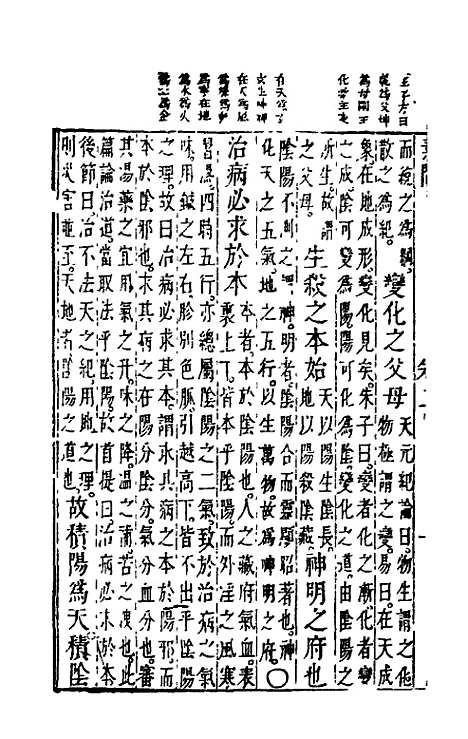 王子方曰
乾爲父坤
爲母
化
玄生神神
在天爲風
在地
爲木爲火
爲土爲金
而總之爲綱
散之爲紀。變化之父母天元紀論曰。物生謂之化
物極謂之變。易曰。在天成
象。在地成形。變化見矣。朱子曰。變者化之漸。化者變
之成。陰可變爲陽。陽可化爲陰。變化之道。由陰陽之
所生。故謂
之父母。生殺之本始天以陽生陰長。
地以陽殺陰藏。神明之府也
陰陽不測之謂神。明者。陰陽合而靈顯昭著也。神
化天之五氣。地之五行。以生萬物。故爲神明之府。〇
治病必求於本本者。本於陰陽也。人之藏府氣血。表
裏上下。皆本乎陰陽。而外淫之風寒
暑濕。四時五行。亦總屬陰陽之二氣。致於治病之氣
味。用鍼之左右。胗別色脈。引越高下。皆不出乎陰陽
之理。故曰治病必求其本。謂求其病之本於陽邪。而
本於陰邪也。求其病之在陽分陰分。氣分血分也。審
其湯藥之宜用氣之升。味之降。溫之補。苦之洩也。此
篇論治道。當取法乎陰陽。故首提曰治病必求於本
後節曰。治不法天之紀。用地之理。
則災害至。天地者。陰陽之道也。故積陽爲天積陰